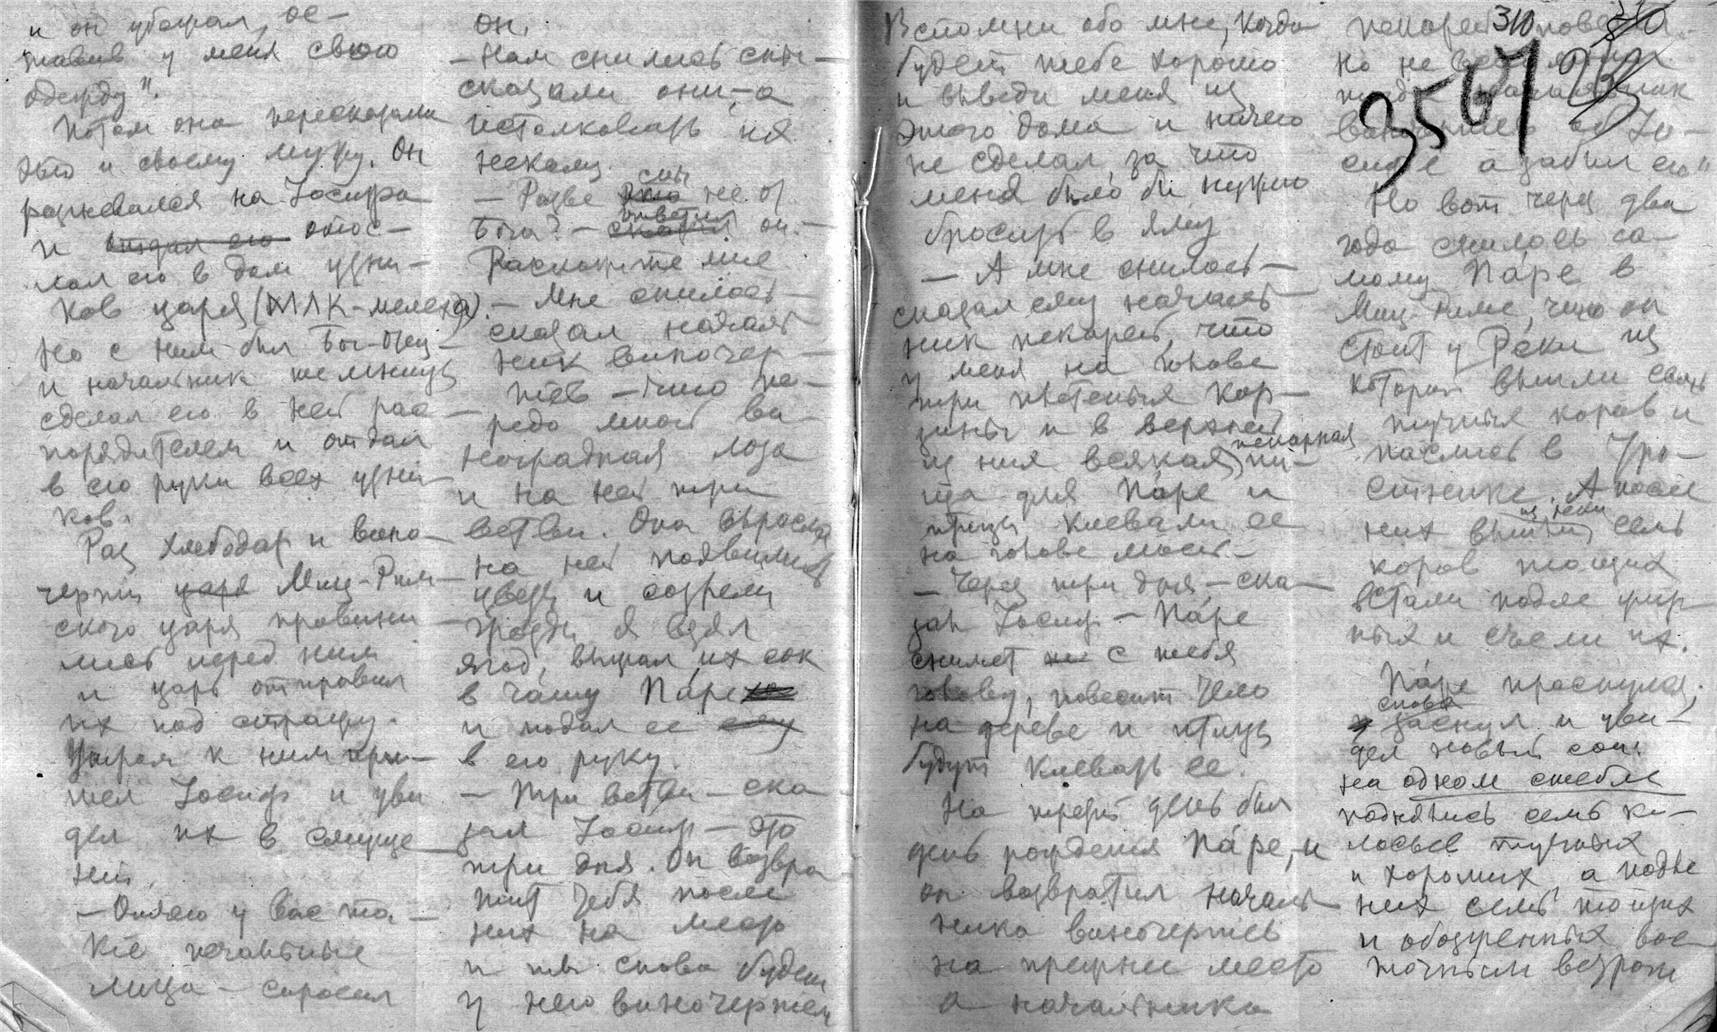 и он убежал, ос-
тавив у меня свою
одежду".
Потом она пересказала
это и своему мужу. Он
разгневался на Іосифа
и отдал его отос-
лал его в дом узни-
ков царя (МЛК-мелеха).
Но с ним был Бог-Отец
и начальник темницы
сделал его в ней рас-
порядителем и отдал
в его руки всех узни-
ков.
Раз хлебодар и вино-
черпий царя Миц-Рим-
ского царя провини-
лись перед ним
и царь отправил
их под стражу.
Утром к ним при-
шел Іосиф и уви
дел их в смуще-
нии.
- Отчего у вас та-
кие печальные
лица - спросил
он.
- Нам снились сны -
сказали они, - а
истолковать их
некому.
- Разве это сны не от
Бога? - сказал ответил он. -
Раскажите мне
- Мне снилось -
сказал началь
ник виночер-
пиев - что пе-
редо мной ви-
ноградная лоза
и на ней три
ветви. Она выросла
на ней появились
цветы и созрели
грозди. Я взял
ягод, выжал их сок
в чашу Па́ре
и подал ее ему
в его руку.
- Три ветви - ска-
зал Іосиф - это
три дня. Он возвра-
тит тебя после
них на место
и ты снова будешь
у него виночерпием
Вспомни обо мне, когда
будет тебе хорошо
и выведи меня из
этого дома и ничего
не сделал, за что
меня было бы нужно
бросить в яму
- А мне снилось -
сказал ему началь
ник пекарей, что
у меня на голове
три плетеныя кор-
зины и в верхней
из них всякая пекарная пи-
ща для Па́ре и
птицы клевали ее
на голове моей -
- Через три дня, - ска-
зал Іосиф - Па́ре
снимет с тебя
голову, повесит тело
на дереве и птицы
будут клевать ее.
На третий день был
день рождения Па́ре, - и
он возвратил началь
ника виночерпиев
на прежнее место
а начальника
310
3567
пекарей
но не
а забыл его"
Но вот через два
года снилось са-
мому Па́ре в
Миц-Риме, что он
стоит у Реки из
которой вышли семь
тучных коров и
паслись в Тро-
стнике. А после
них вышли из реки семь
коров тощих
встали подле жир-
ных и съели их.
Па́ре проснулся,
и снова заснул и уви-
дел новый сон:
на одном стебле
поднялись семь ко-
лосьев тучных
и хороших а подле
них семь тощих
и обожженных вос
точным ветром